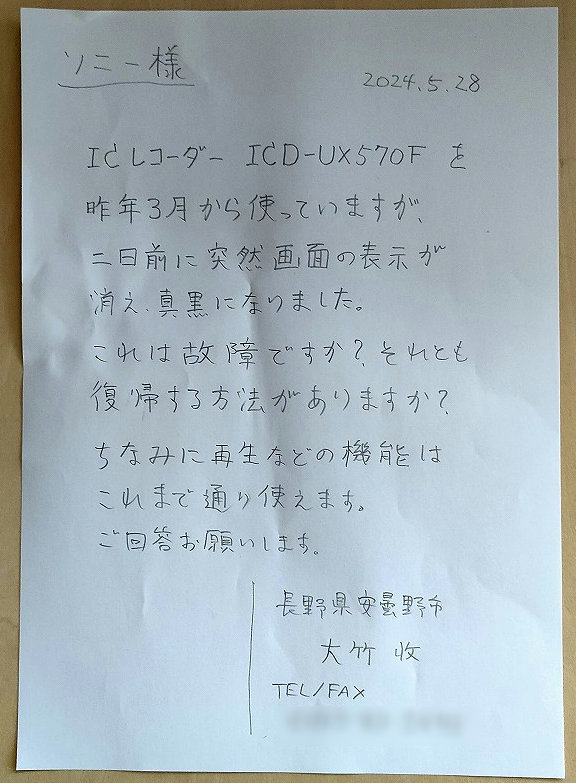 ソニー様
2024.5.28
ICレコーダー ICD-UX570F を
昨年3月から使っていますが、
二日前に突然画面の表示が
消え、真黒になりました。
これは故障ですか？それとも
復帰する方法がありますか？
ちなみに再生などの機能は
これまで通り使えます。
ご回答お願いします。
長野県安曇野市
大竹 收
TEL/FAX